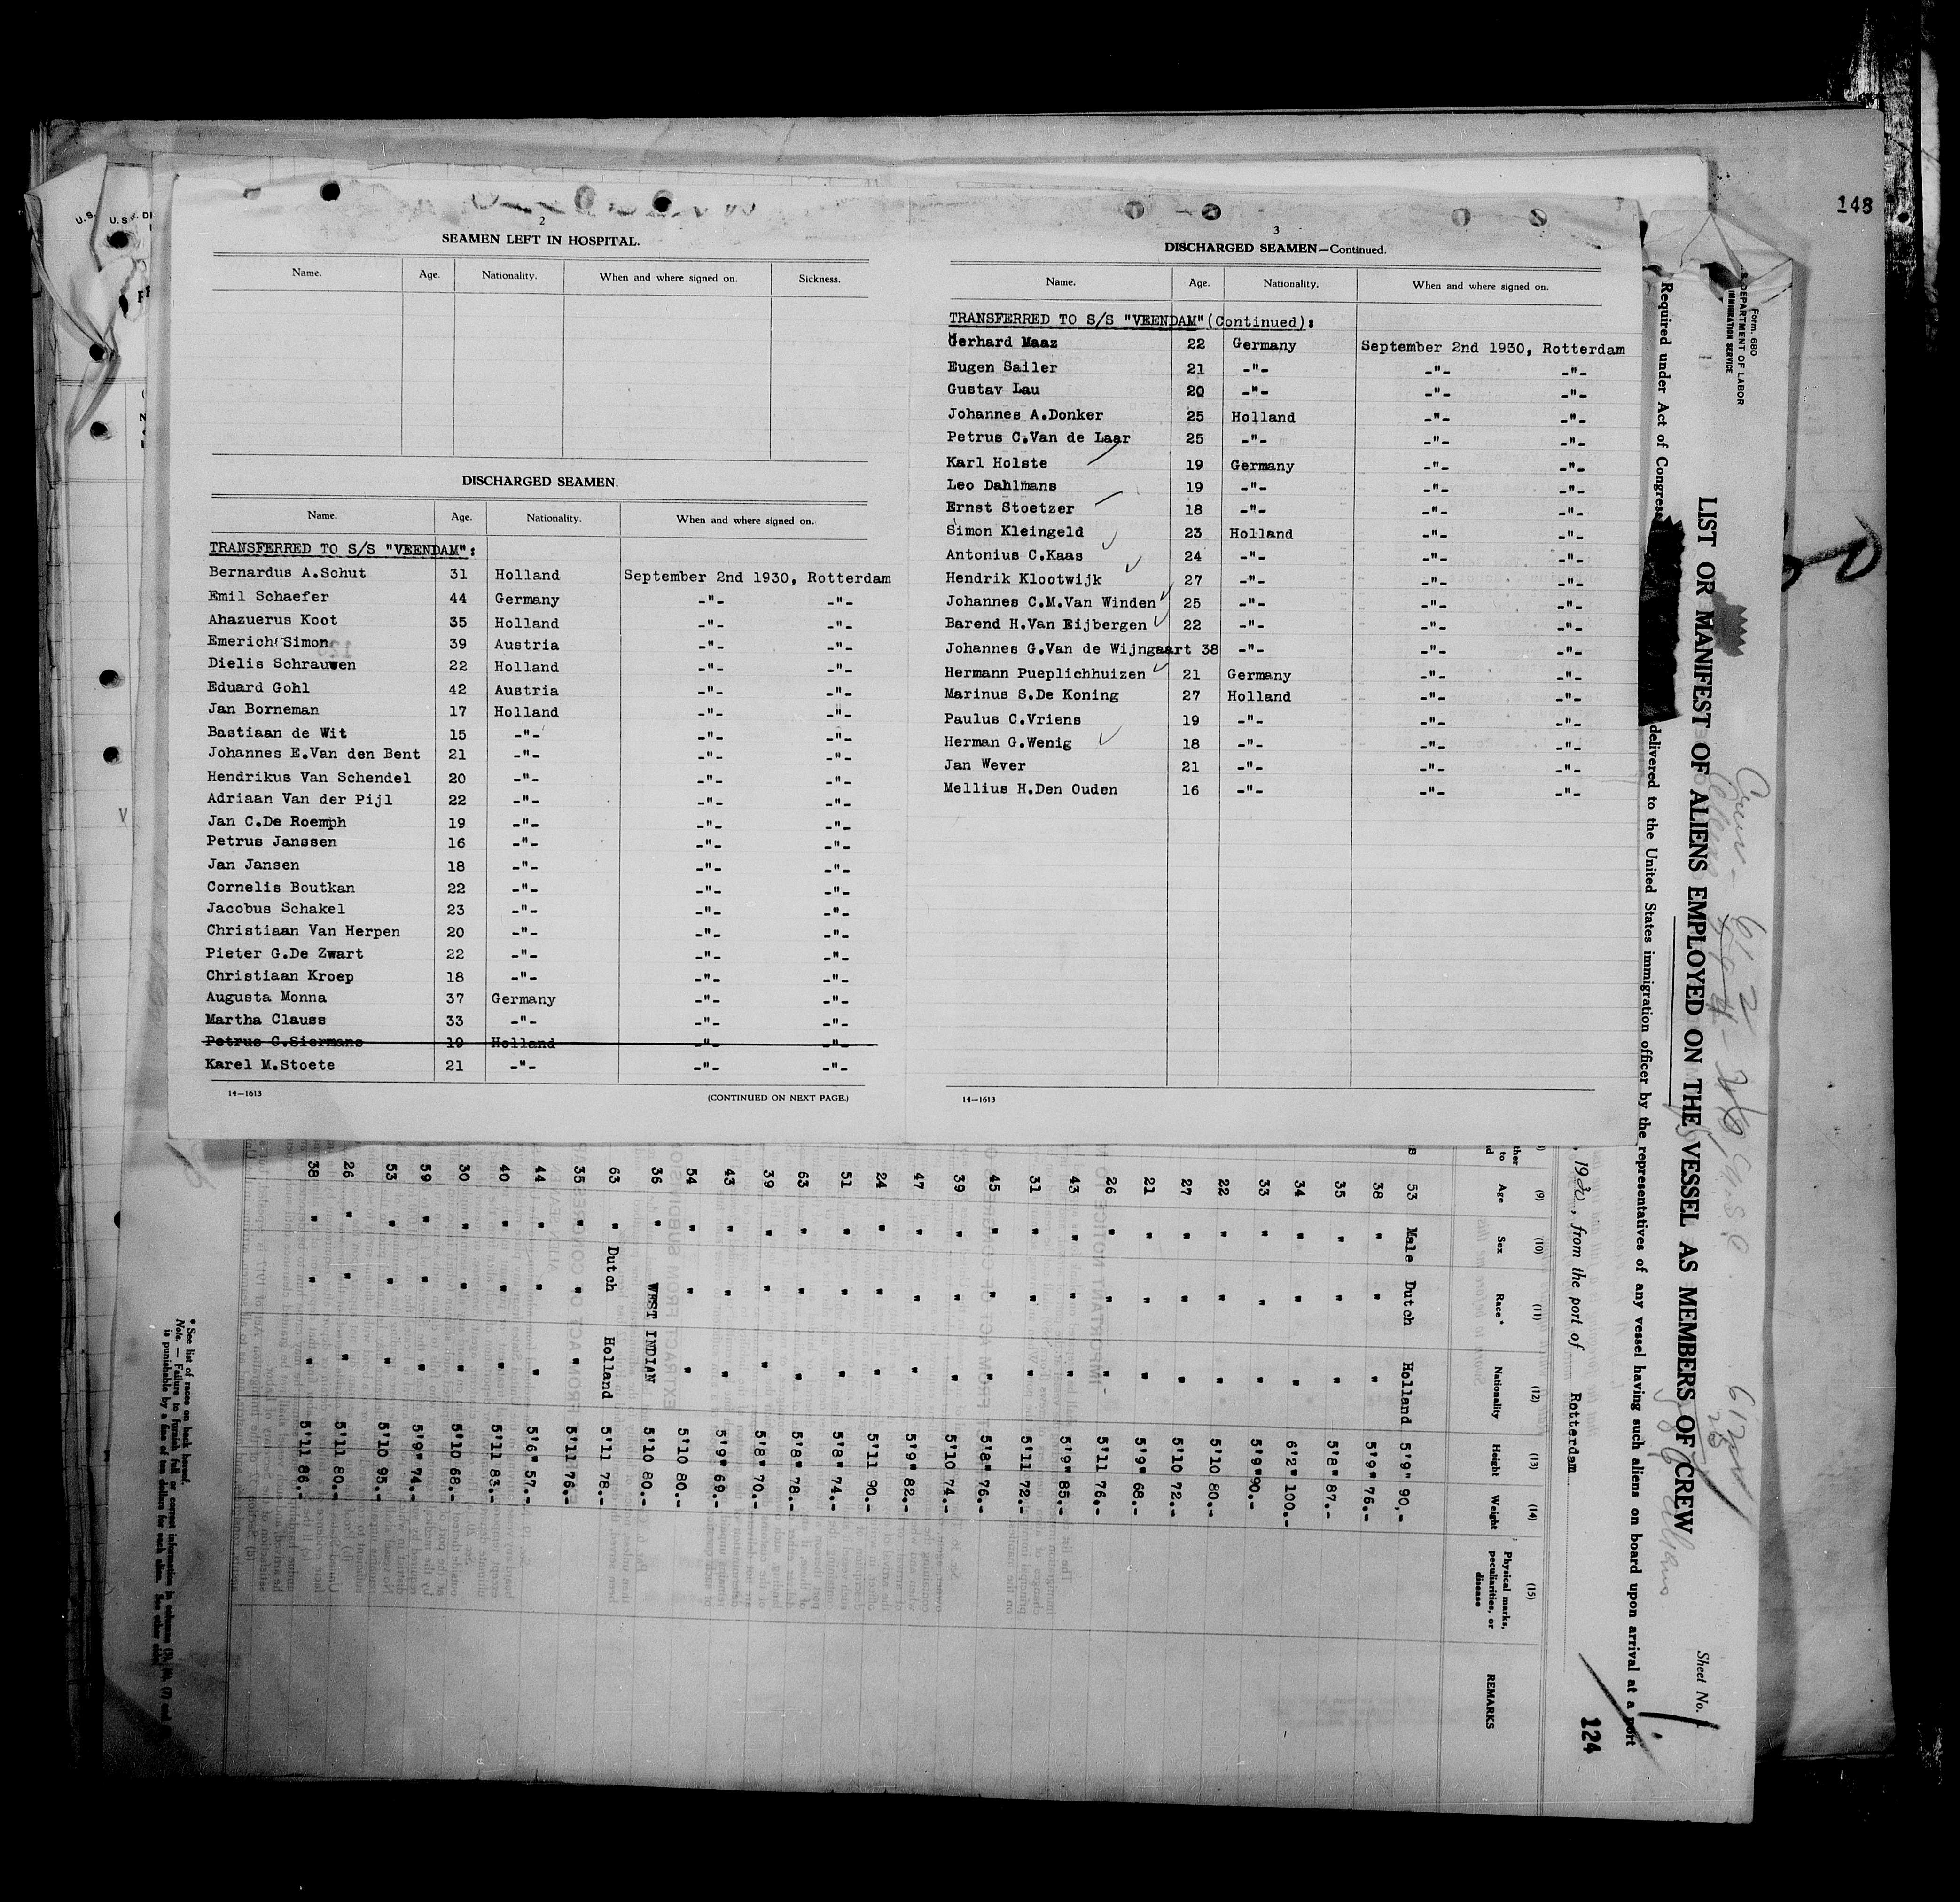 148
2
SEAMEN LEFT IN HOSPITAL.
Name. Age. Nationality. When and where signed on. Sickness.
DISCHARGED SEAMEN.
Name. Age. Nationality. When and where signed on.
TRANSFERRED TO S/S "VEENDAM":
Bernardus A.Schut 31 Holland September 2nd 1930, Rotterdam
Emil Schaefer 44 Germany -"- -"-
Ahazuerus Koot 35 Holland -"- -"-
Emerich Simon 39 Austria -"- -"-
Dielis Schrauwen 22 Holland -"- -"-
Eduard Gohl 42 Austria -"- -"-
Jan Borneman 17 Holland -"- -"-
Bastiaan de Wit 15 -"- -"- -"-
Johannes E.Van den Bent 21 -"- -"- -"-
Hendrikus Van Schendel 20 -"- -"- -"-
Adriaan Van der Pijl 22 -"- -"- -"-
Jan C.De Roemph 19 -"- -"- -"-
Petrus Janssen 16 -"- -"- -"-
Jan Jansen 18 -"- -"- -"-
Cornelis Boutkan 22 -"- -"- -"-
Jacobus Schakel 23 -"- -"- -"-
Christiaan Van Herpen 20 -"- -"- -"-
Pieter G.De Zwart 22 -"- -"- -"-
Christiaan Kroep 18 -"- -"- -"-
Augusta Monna 37 Germany -"- -"-
Martha Clauss 33 -"- -"- -"-
Petrus C.Siermans 19 Holland -"- -"-
Karel M.Stoete 21 -"- -"- -"-
14—1613 (CONTINUED ON NEXT PAGE.)
3
DISCHARGED SEAMEN—Continued.
Name. Age. Nationality. When and where signed on.
TRANSFERRED TO S/S "VEENDAM"(Continued):
Gerhard Maaz 22 Germany September 2nd 1930, Rotterdam
Eugen Sailer 21 -"- -"- -"-
Gustav Lau 20 -"- -"- -"-
Johannes A.Donker 25 Holland -"- -"-
Petrus C.Van de Laar 25 -"- -"- -"-
Karl Holste 19 Germany -"- -"-
Leo Dahlmans 19 -"- -"- -"-
Ernst Stoetzer 18 -"- -"- -"-
Simon Kleingeld 23 Holland -"- -"-
Antonius C.Kaas 24 -"- -"- -"-
Hendrik Klootwijk 27 -"- -"- -"-
Johannes C.M.Van Winden 25 -"- -"- -"-
Barend H.Van Eijbergen 22 -"- -"- -"-
Johannes G.Van de Wijngaart 38 -"- -"- -"-
Hermann Pueplichhuizen 21 Germany -"- -"-
Marinus S.De Koning 27 Holland -"- -"-
Paulus C.Vriens 19 -"- -"- -"-
Herman G.Wenig 18 -"- -"- -"-
Jan Wever 21 -"- -"- -"-
Mellius H.Den Ouden 16 -"- -"- -"-
14—1613
Form. 680
DEPARTMENT OF LABOR
IMMIGRATION SERVICE
LIST OR MANIFEST OF ALIENS EMPLOYED ON THE VESSEL AS MEMBERS OF CREW
Sheet No. 1
Required under Act of Congress delivered to the United States immigration officer by the representatives of any vessel having such aliens on board upon arrival at a port
, 1930, from the port of Rotterdam
124
(9) (10) (11) (12) (13) (14) (15)
Age Sex Race* Nationality Height Weight Physical marks, peculiarities, or disease REMARKS
53 Male Dutch Holland 5'9" 90,-
38 " " " 5'9" 76.-
35 " " " 5'8" 87.-
34 " " " 6'2" 100.-
33 " " " 5'9" 90.-
22 " " " 5'10 80.-
27 " " " 5'10 72.-
21 " " " 5'9" 68.-
26 " " " 5'11 76.-
43 " " " 5'9" 85.-
31 " " " 5'11 72.-
45 " " " 5'8" 76.-
39 " " " 5'10 74.-
47 " " " 5'9" 82.-
24 " " " 5'11 90.-
51 " " " 5'8" 74.-
63 " " " 5'8" 78.-
39 " " " 5'8" 70.-
43 " " " 5'9" 69.-
54 " " " 5'10 80.-
36 " WEST INDIAN 5'10 80.-
63 " Dutch Holland 5'11 78.-
35 " " " 5'11 76.-
44 " " " 5'6" 57.-
40 " " " 5'11 83.-
30 " " " 5'10 68.-
59 " " " 5'9" 74.-
53 " " " 5'10 95.-
26 " " " 5'11 80.-
38 " " " 5'11 86.-
* See list of races on back hereof.
Note. — Failure to furnish full or correct information in columns (5), (6), (7) and
is punishable by a fine of ten dollars for each alien. See other side